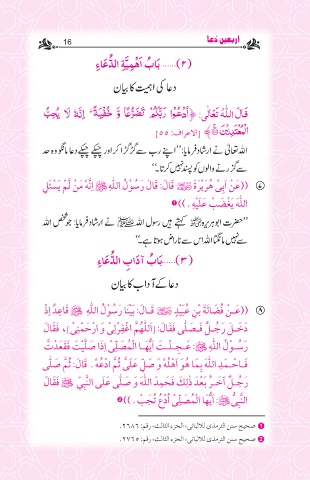 16
اربعین دعا
(٢)......بَابُ أَهْمِیَّةِ الدُّعَاءِ
دعا کی اہمیت کا بیان
قَالَ اللّٰهُ تَعَالٰی: ﴿اُدْعُوْا رَبَّکُمْ تَضَرُّعًا وَّ خُفْیَةً ۚ اِنَّهٗ لَا یُحِبُّ
الْمُعْتَدِیْنَ ۝﴾ [الاعراف: ٥٥]
اللہ تعالیٰ نے ارشاد فرمایا: ’’اپنے رب سے گڑ گڑا کر اور چپکے چپکے دعا مانگو وہ حد
سے گزرنے والوں کو پسند نہیں کرتا۔‘‘
⑦ ((عَنْ اَبِیْ هُرَیْرَةَ ﷜ قَالَ: قَالَ رَسُوْلُ اللّٰهِ ﷺ اِنَّهٗ مَنْ لَّمْ یَسْئَلِ
اللّٰهَ یَغْضَبْ عَلَیْهِ.)) ❶
’’حضرت ابو ہریرہ ﷜ کہتے ہیں رسول اللہ ﷺ نے ارشاد فرمایا: جو شخص اللہ
سے نہیں مانگتا اللہ اس سے ناراض ہوتا ہے۔‘‘
(٣)......بَابُ آدَابِ الدُّعَاءِ
دعا کے آداب کا بیان
⑧ ((عَنْ فُضَالَةَ بْنِ عُبَیْدٍ ﷜ قَالَ: بَیْنَا رَسُوْلُ اللّٰهِ ﷺ قَاعِدًا اِذْ
دَخَلَ رَجُلٌ فَصَلّٰی فَقَالَ: [اَللّٰهُمَّ اغْفِرْلِیْ وَ ارْحَمْنِیْ]، فَقَالَ
رَسُوْلُ اللّٰهِ ﷺ: عَجِلْتَ اَیُّهَا الْمُصَلِّیْ اِذَا صَلَّیْتَ فَقَعَدْتَّ
فَاحْمَدِ اللّٰهَ بِمَا هُوَ اَهْلُهٗ وَ صَلِّ عَلَیَّ ثُمَّ ادْعُهٗ. قَالَ: ثُمَّ صَلّٰی
رَجُلٌ آخَرُ بَعْدَ ذٰلِکَ فَحَمِدَ اللّٰهَ وَ صَلّٰی عَلَی النَّبِیِّ ﷺ فَقَالَ
النَّبِیُّ ﷺ: اَیُّهَا الْمُصَلِّیْ اُدْعُ تُجَبْ.)) ❷
❶ صحیح سنن الترمذی للالبانی، الجزء الثالث، رقم: ٢٦٨٦.
❷ صحیح سنن الترمذی للالبانی، الجزء الثالث، رقم: ٢٧٦٥.